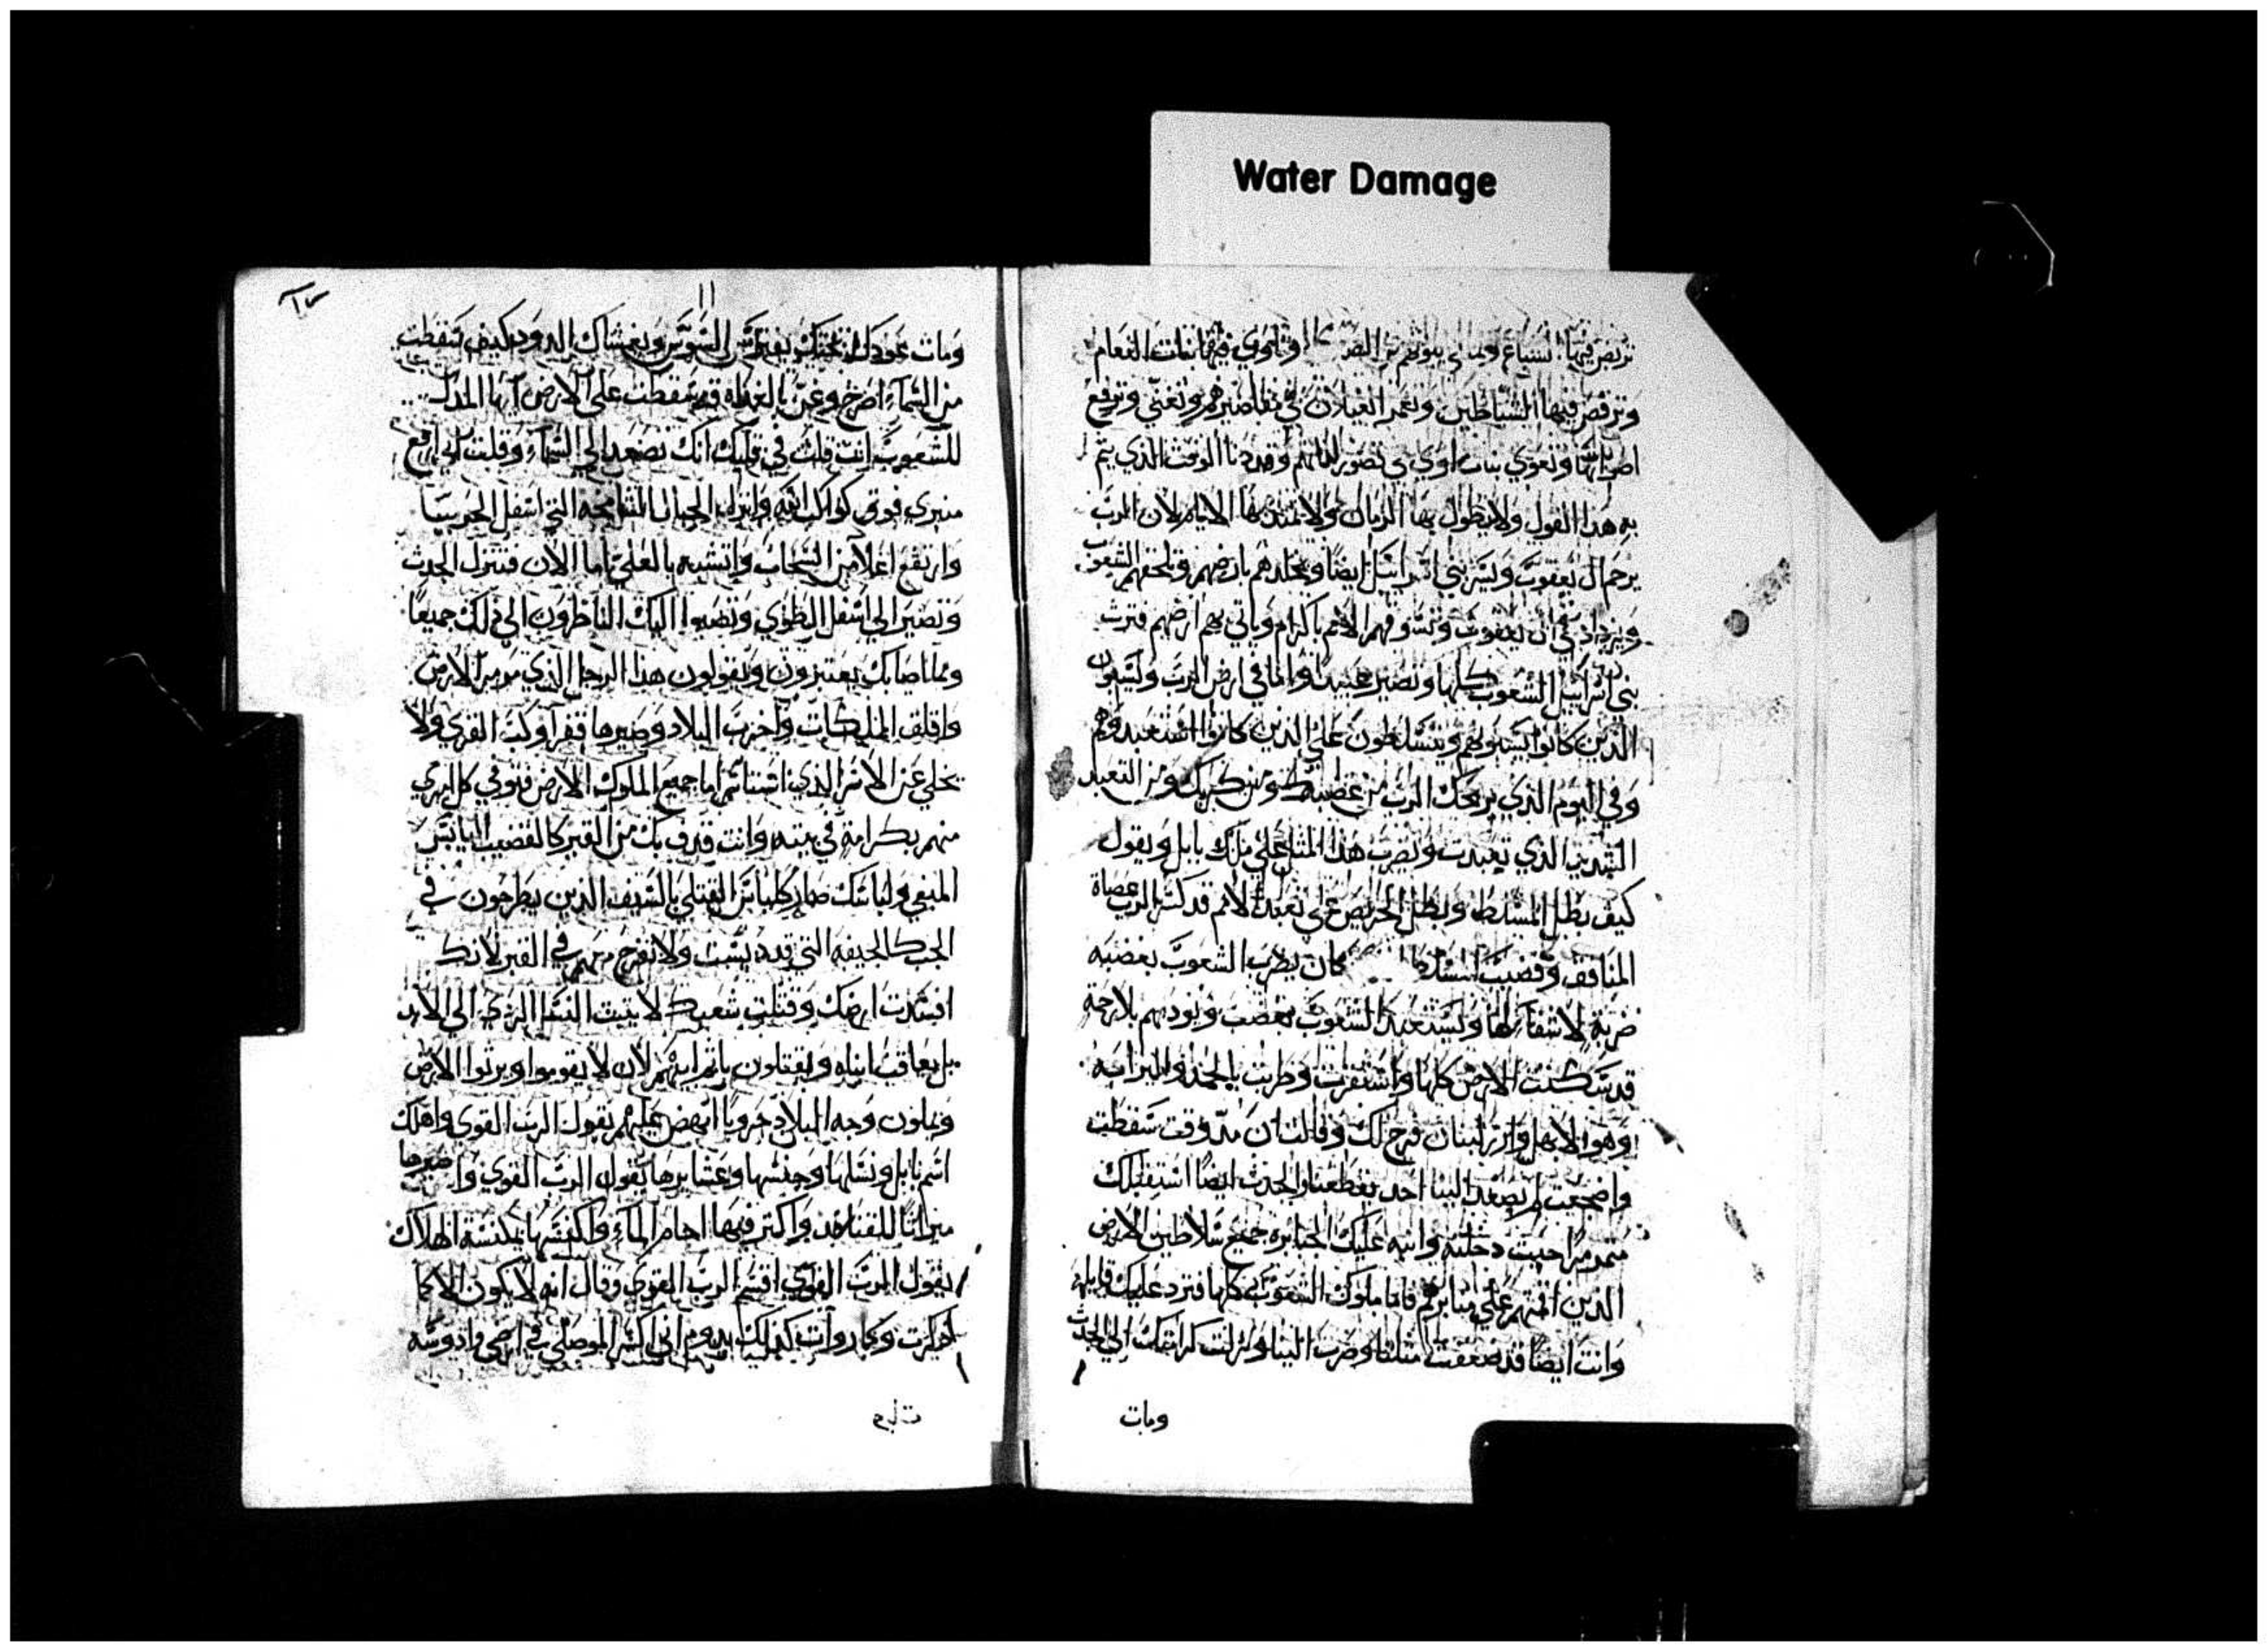 Water Damage
تربض فيها السباع وتمتلي بيوتهم من وتاوي فيها بنات النعام
وترقص فيها الشياطين وتعمر الغيلان في مقاصيرهم وتغني وترفع
اصواتها وتعوي بنات اوي في قصور لذاتهم وقد دنا الوقت الذي يتم
به هذا القول ولا يطول بها الزمان ولا تمتد بها الايام لان الرب
يرحم ال يعقوب ويسر ببني اسراييل ايضا ويخلدهم بارضهم وتلحقهم الشعوب
ويزداد على ال يعقوب وتسوقهم الامم باكرام وياتي بهم ارضهم فترث
بني اسراييل الشعوب كلها وتصير عبيدا واما في ارض الرب ويسبون
الذين كانوا يسبونهم ويتسلطون على الذين كانوا استعبدوهم
وفي اليوم الذي يريحك الرب من غضبك ومن كربك ومن التعبد
الشديد الذي تعبدت وتضرب هذا المثل علي ملك بابل وتقول
كيف بطل المسلط وبطل الحريص علي تعبد الامم قد كسر الرب عصاة
المنافق وقضيب كان يضرب الشعوب بغضبه
ضربة لا شفا لها ويستعبد الشعوب بغضب ويودبهم بلا رحمة
قد سكنت الارض كلها واستقرت وطربت بالحمد والمزامير
وهوا الابهل وارز لبنان فرح لك وقالت ان مذ وقت سقطت
واضجعت لم يصعد الينا احد يقطعنا والجدث ايضا استقبلك
متمرمرا حيث دخلته وانبه عليك الجبابرة جميع سلاطين الارض
الذين اقمتهم علي منابرهم فاما ملوك الشعوب كلها فترد عليك قايلة
وانت ايضا قد ضعفت مثلنا وصرت الينا ونزلت كرامتك الي الجدث
ومات
١١
ومات عودك تحتك يفترش السوس ويغشاك الدود كيف سقطت
من السماء اصرخ وعن بالغداه قد سقطت علي الارض ايها المذل
للشعوب انت قلت في قلبك انك تصعد الي السماء وقلت اني ارفع
منبري فوق كواكب الله وانزل الجبال الشامخة التي اسفل الجربيا
وارتفع اعلا من السحاب واتشبه بالعلي اما الان فتنزل الجدث
وتصير الي اسفل الطوي وتصبوا اليك الناظرون الي ذلك جميعا
وبما اصابك يعتبرون ويقولون هذا الرجل الذي مرمر الارض
واقلق الملكات واخرب البلاد وصيرها قفرا وكب القري ولا
يخلي عن الاسر الذي استاسر اما جميع الملوك الارض فتوفي كل امري
منهم بكرامة في بيته وانت قذف بك من القبر كالقضيب اليابس
المنفي ولباسك صار كلباس القتلي بالسيف الذين يطرحون في
الجب كالجيفة التي قد ديست ولا تفرح معهم في القبر لانك
افسدت ارضك وقتلت شعبك لا يثبت النسل الردي الي الابد
بل يعاقب ابناه ويقتلون باثم ابيهم لان لا يقوموا ويرثوا الارض
ويملون وجه البلاد حروبا انهض عليهم يقول الرب القوي واهلك
اسم بابل ونسلها وجنسها وعشايرها يقول الرب القوي واصيرها
ميراثا للقنافذ واكثر فيها اجام الماء واكنسها بمكنسة الهلاك
يقول الرب القوي اقسم الرب القوي وقال انه لا يكون الا كما
فكرت وكما روات كذلك يدوم اني اكسر الموصلي في ارضي وادوسه